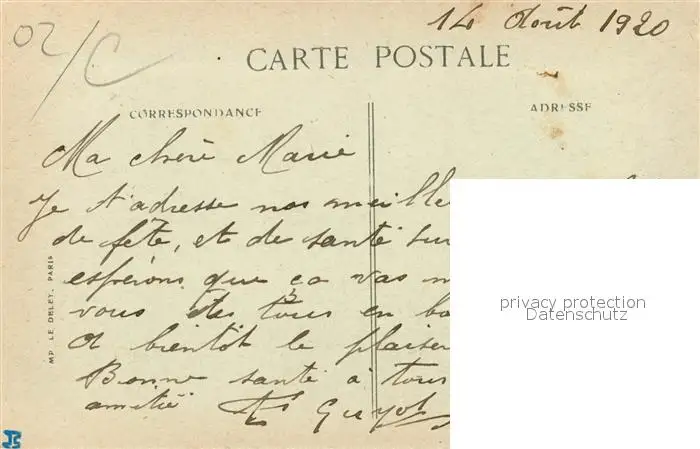 02/C
14 Août 1920
CARTE POSTALE
CORRESPONDANCE
ADRESSE
Ma chère Marie
Je t'adresse nos meille
de fête, et de santé sur
espérons que ça vas m
vous êtes tous en bo
A bientôt le plaiser
Bonne santé à tous
amitié Guyot
MP LE DELEY, PARIS
privacy protection
Datenschutz